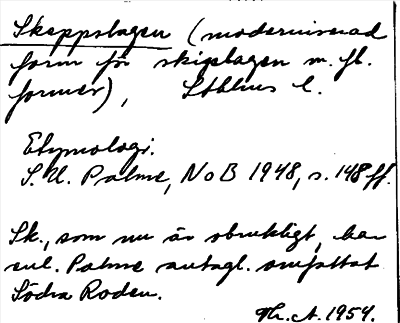 Skeppslagen (moderniserad
form för skipslagen m. fl.
former), Sthlms l.
Etymologi.
S. U. Palme, NoB 1948, s. 148 ff.
Sk., som nu är obrukligt, har
enl. Palme antagl. omfattat
Södra Roden.
Th. A. 1954.